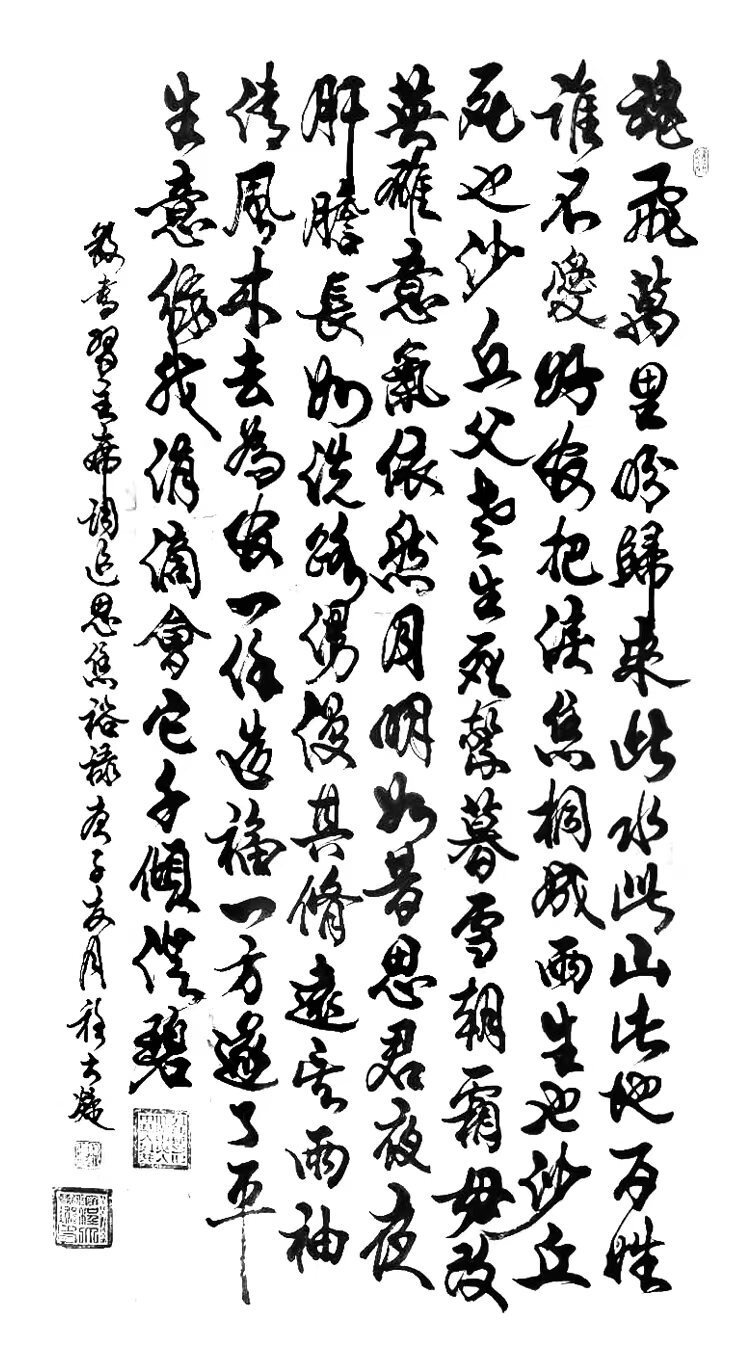 魂飛萬里盼歸來此水此山此地百姓
誰不愛好官把淚焦桐成雨生也沙丘
死也沙丘父老生死繫暮雪朝霜毋改
英雄意氣依然月明如昔思君夜夜
肝膽長如洗路漫漫其脩遠矣兩袖
清風来去為官一任造福一方遂了平
生意綠我涓滴會它千頃澄碧
敬書習主席詞追思焦裕祿庚子夏月程大